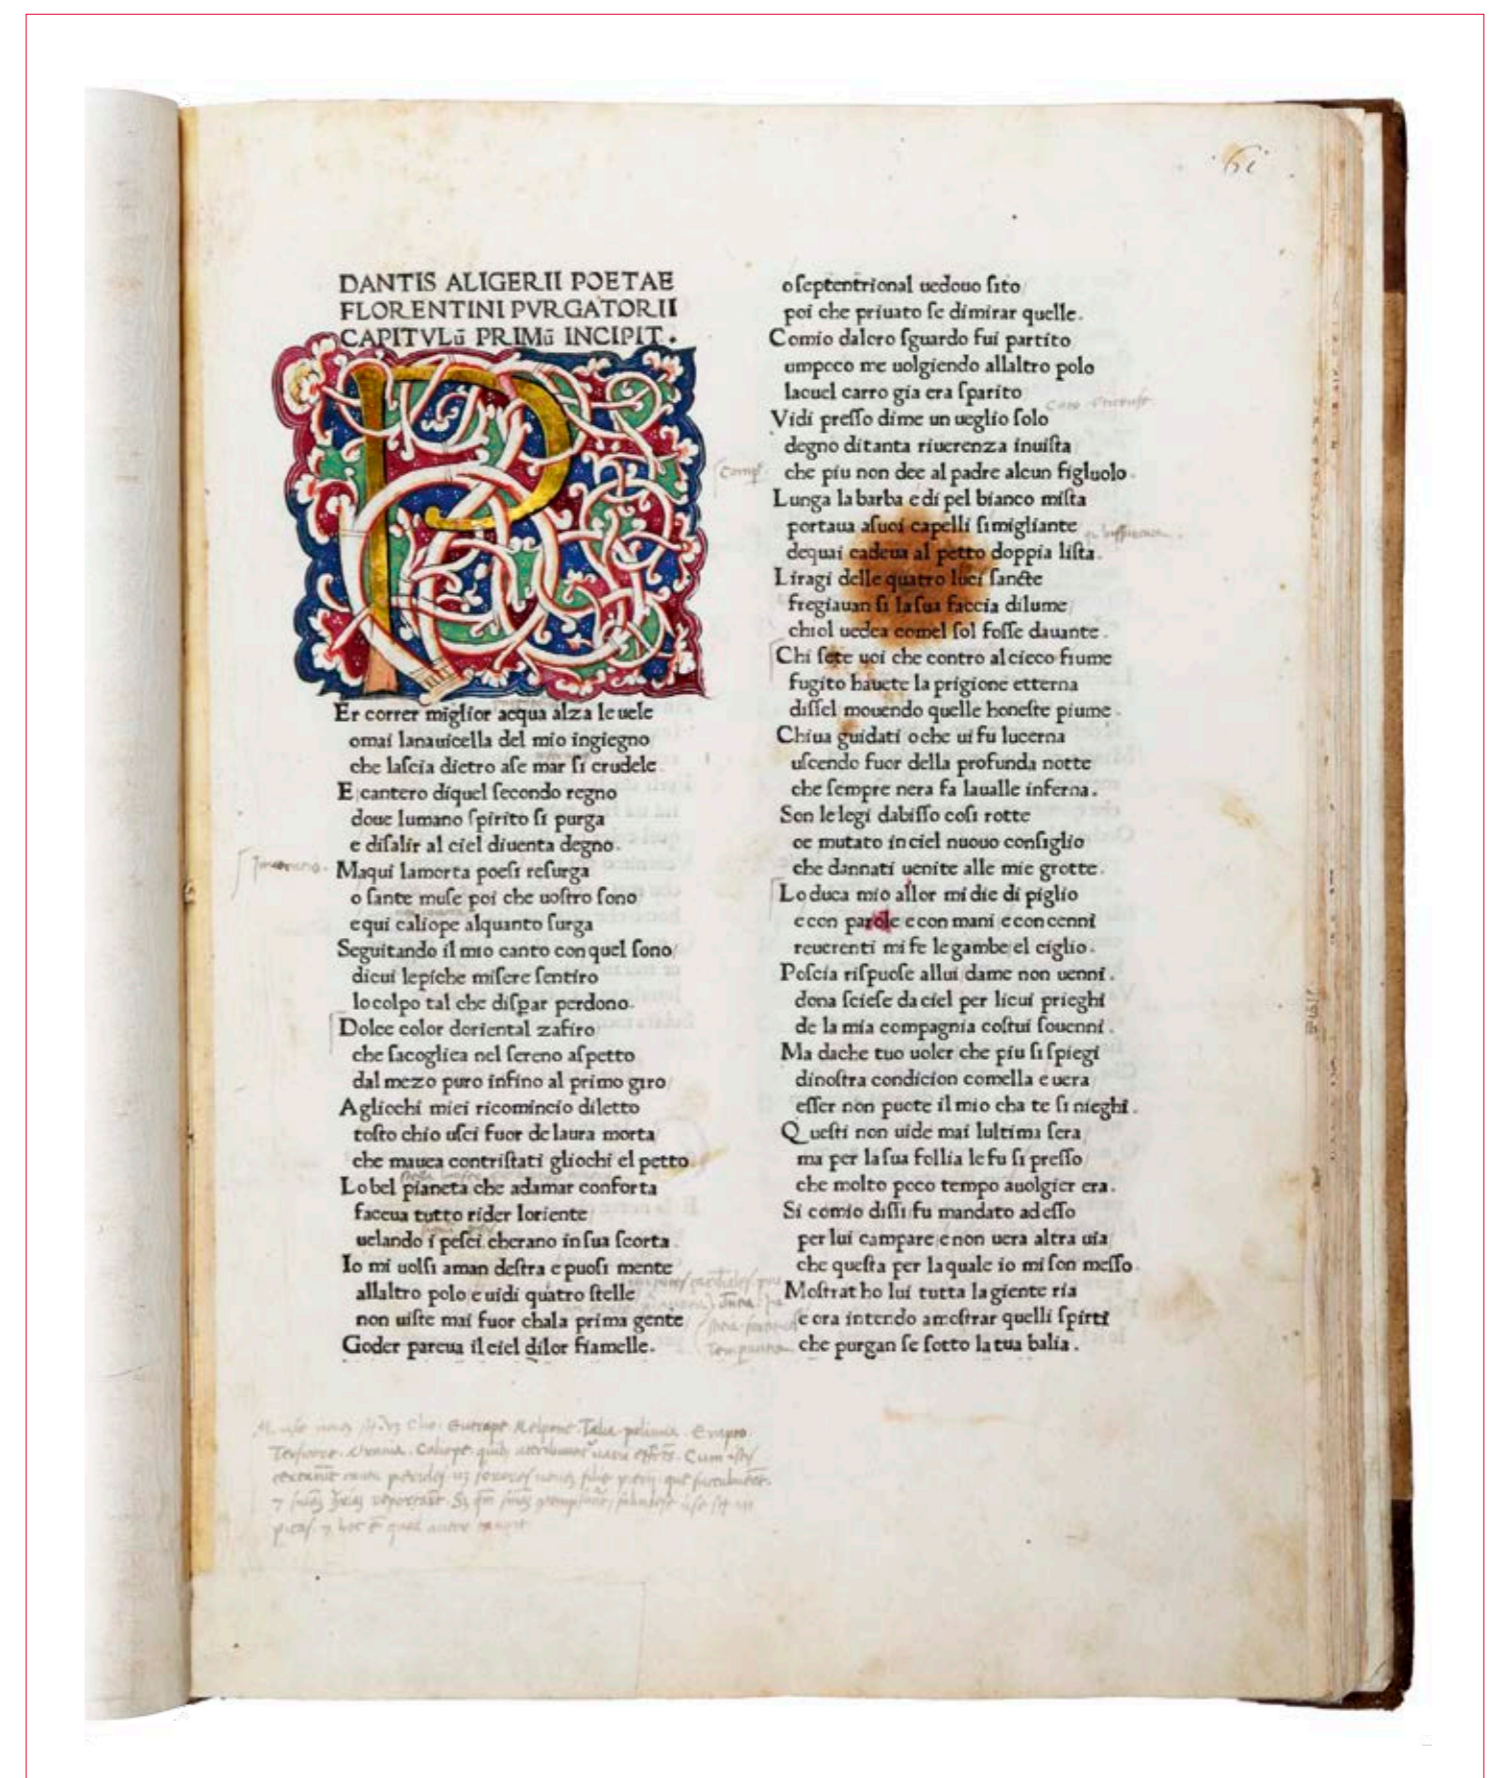 61
DANTIS ALIGERII POETAE
FLORENTINI PVRGATORII
CAPITVLū PRIMū INCIPIT.
P
Er correr miglior acqua alza le uele
omai lanauicella del mio ingiegno
che laſcia dietro aſe mar ſi crudele
E cantero diquel ſecondo regno
doue lumano ſpirito ſi purga
e diſalir al ciel diuenta degno.
Maqui lamorta poeſi reſurga
o ſante muſe poi che uoſtro ſono
equi caliope alquanto ſurga
Seguitando il mio canto con quel ſono
dicui lepiche miſere ſentiro
locolpo tal che diſpar perdono.
Dolce color doriental zafiro
che ſacogliea nel ſereno aſpetto
dal mezo puro infino al primo giro
Agliochi miei ricomincio diletto
toſto chio uſci fuor de laura morta
che mauea contriſtati gliochi el petto
Lobel pianeta che adamar conforta
faceua tutto rider loriente
uelando i peſci cherano in ſua ſcorta
Io mi uolſi aman deſtra e puoſi mente
allaltro polo e uidi quatro ſtelle
non uiſte mai fuor chala prima gente
Goder pareua il ciel dilor fiamelle.
o ſeptentrional uedouo ſito
poi che priuato ſe dimirar quelle.
Comio daloro ſguardo fui partito
umpoco me uolgiendo allaltro polo
laouel carro gia era ſparito
Vidi preſſo dime un ueglio ſolo
degno ditanta riuerenza inuiſta
che piu non dee al padre alcun figluolo.
Lunga la barba e di pel bianco miſta
portaua aſuoi capelli ſimigliante
dequai cadeua al petto doppia liſta.
Liragi delle quatro luci ſancte
fregiauan ſi la ſua faccia dilume
chiol uedea comel ſol foſſe dauante.
Chi ſete uoi che contro al cieco fiume
fugito hauete la prigione etterna
diſſel mouendo quelle honeſte piume.
Chiua guidati oche ui fu lucerna
uſcendo fuor della profunda notte
che ſempre nera fa laualle inferna.
Son le legi dabiſſo coſi rotte
oe mutato in ciel nuouo conſiglio
che dannati uenite alle mie grotte.
Lo duca mio allor mi die di piglio
econ parole e con mani e con cenni
reuerenti mi fe le gambe el ciglio.
Poſcia riſpuoſe allui dame non uenni.
dona ſcieſe da ciel per licui prieghi
de la mia compagnia coſtui ſouenni.
Ma dache tuo uoler che piu ſi ſpiegi
dinoſtra condicion comella e uera
eſſer non puote il mio cha te ſi nieghi.
Queſti non uide mai lultima ſera
ma per la ſua follia le fu ſi preſſo
che molto poco tempo auolgier era.
Si comio diſſi fu mandato ad eſſo
per lui campare e non uera altra uia
che queſta per laquale io mi ſon meſſo
Moſtrat ho lui tutta la giente ria
e ora intendo amoſtrar quelli ſpirti
che purgan ſe ſotto la tua balia.